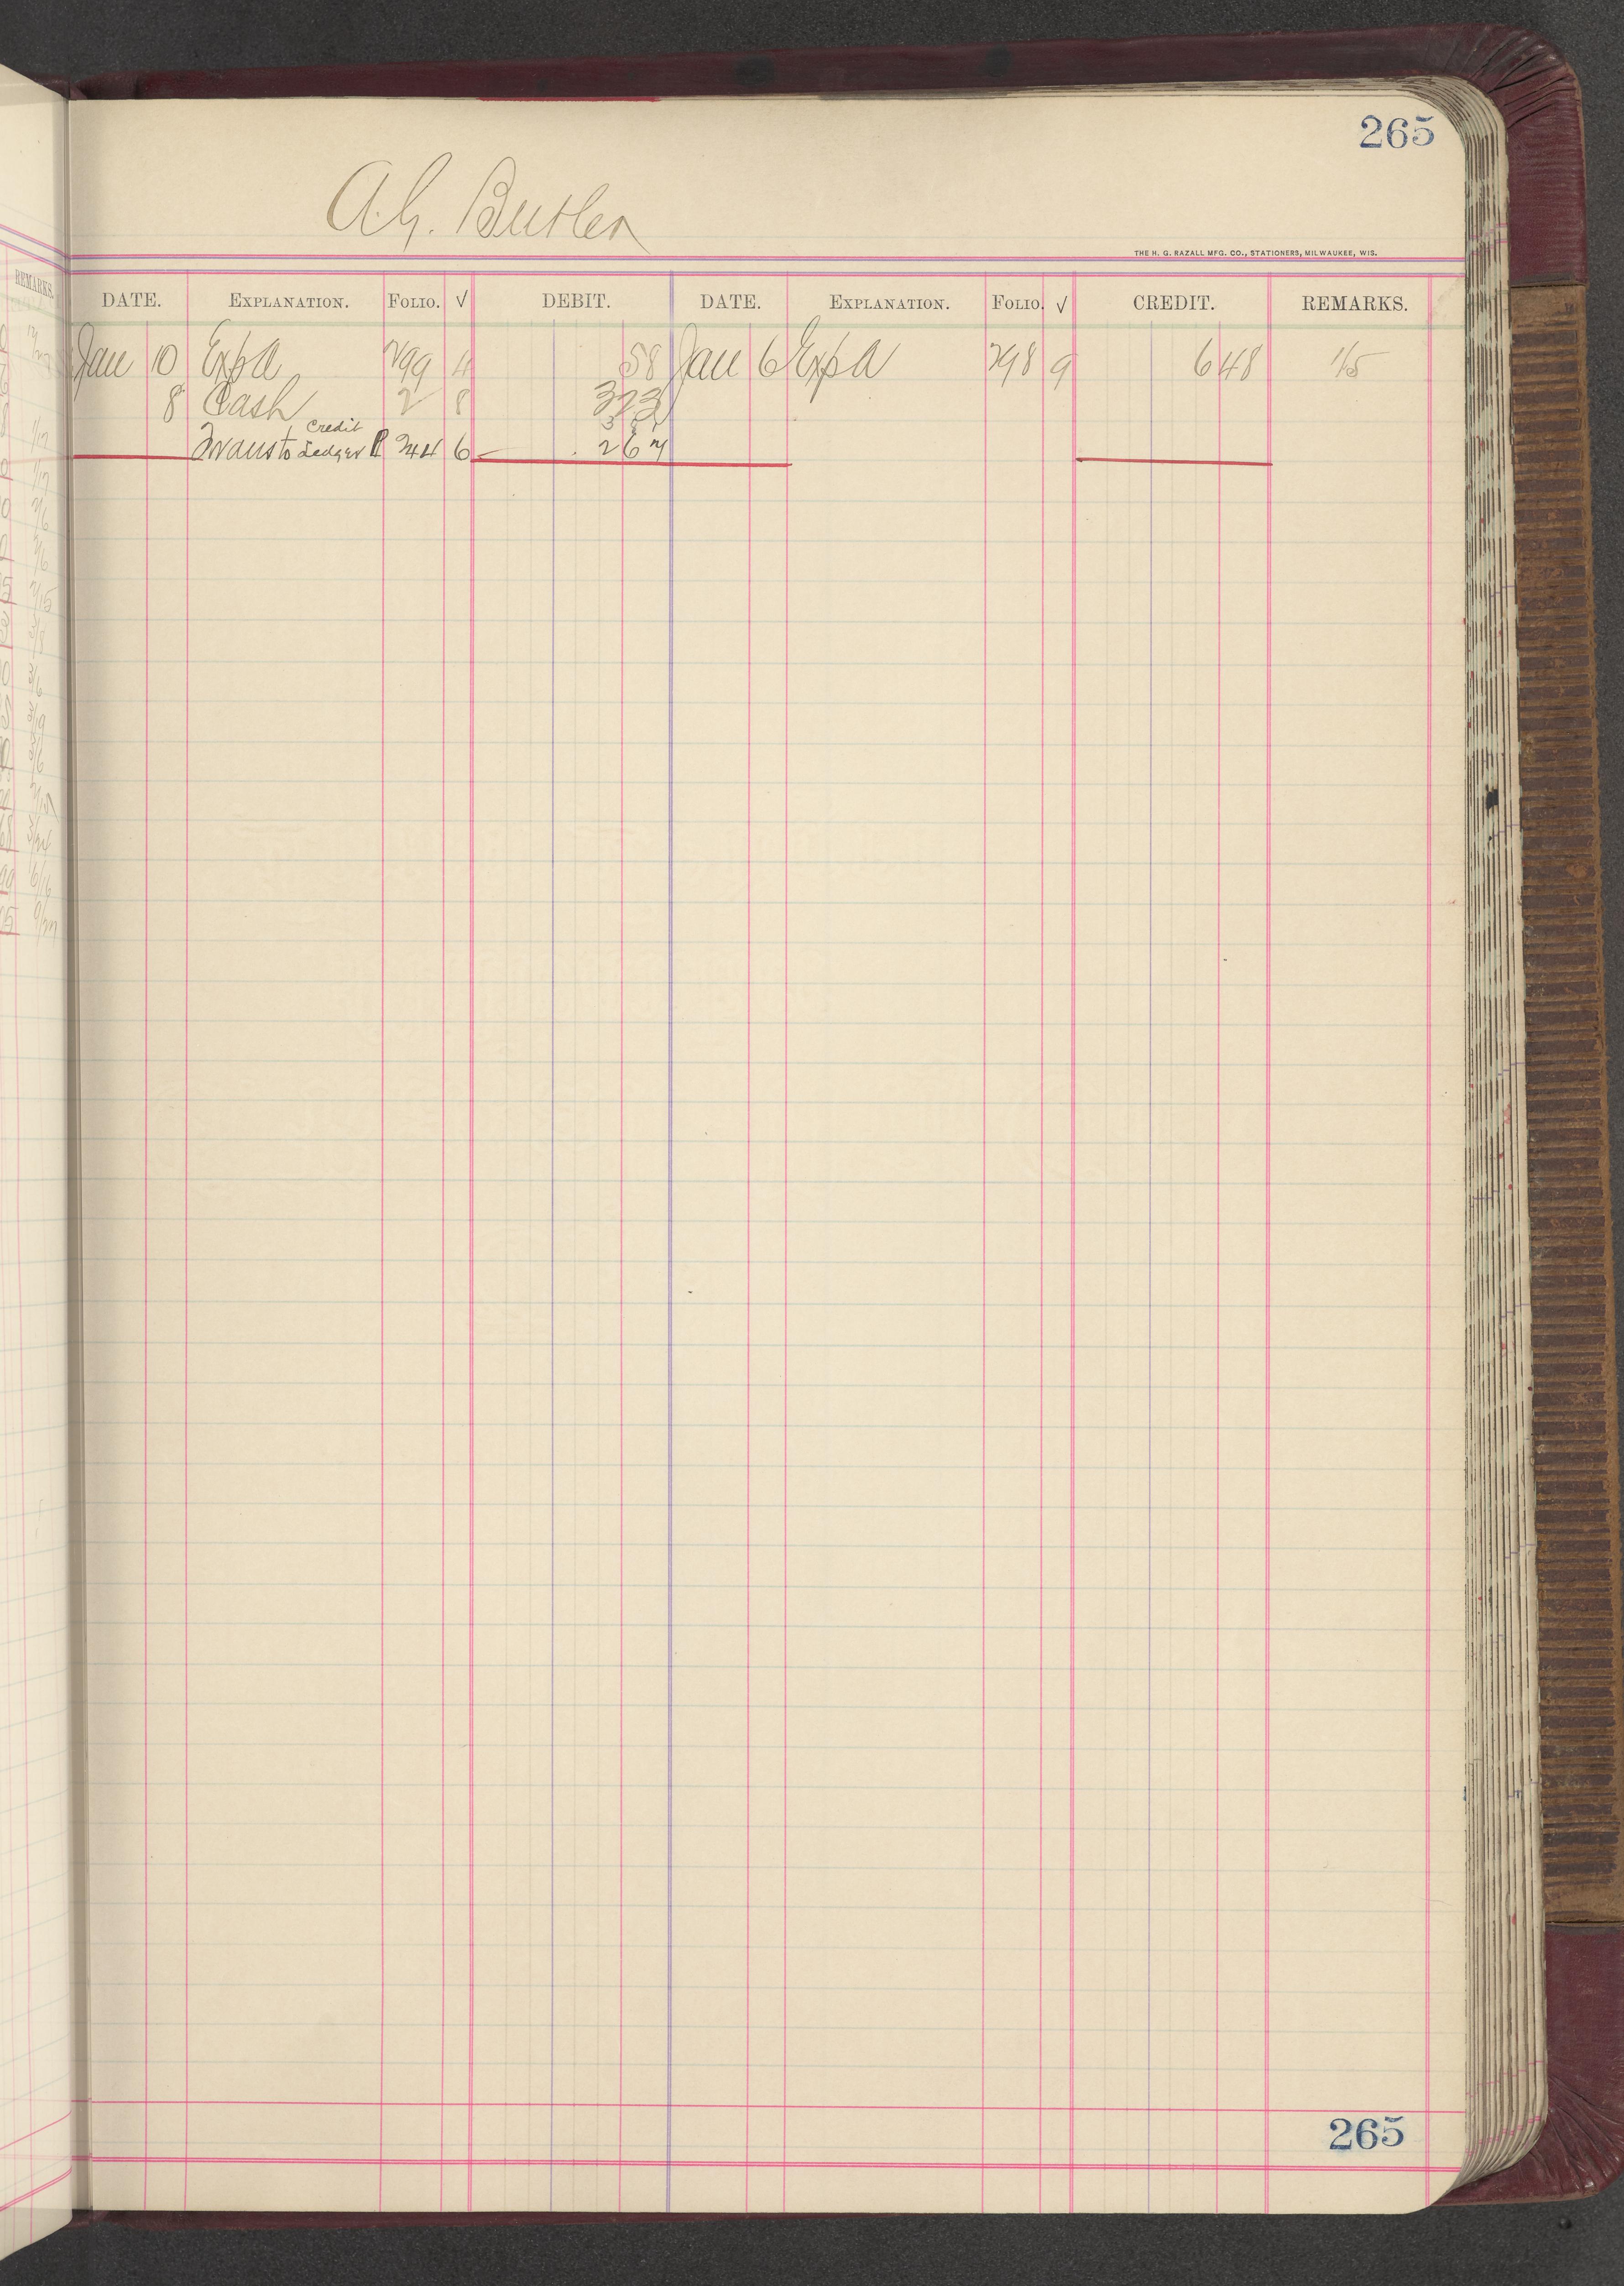 265
A.G. Butler
THE H. G. RAZALL MFG. CO., STATIONERS, MILWAUKEE, WIS.
DATE. EXPLANATION. FOLIO. √ DEBIT. DATE. EXPLANATION. FOLIO. √ CREDIT. REMARKS.
Jan 10 Exp a 299 4 58 Jan 6 Exp a 298 9 6 48 1/5
8 Cash 2 8 3 23
Trans to Credit Ledger P 244 6 2 67
265
REMARKS.